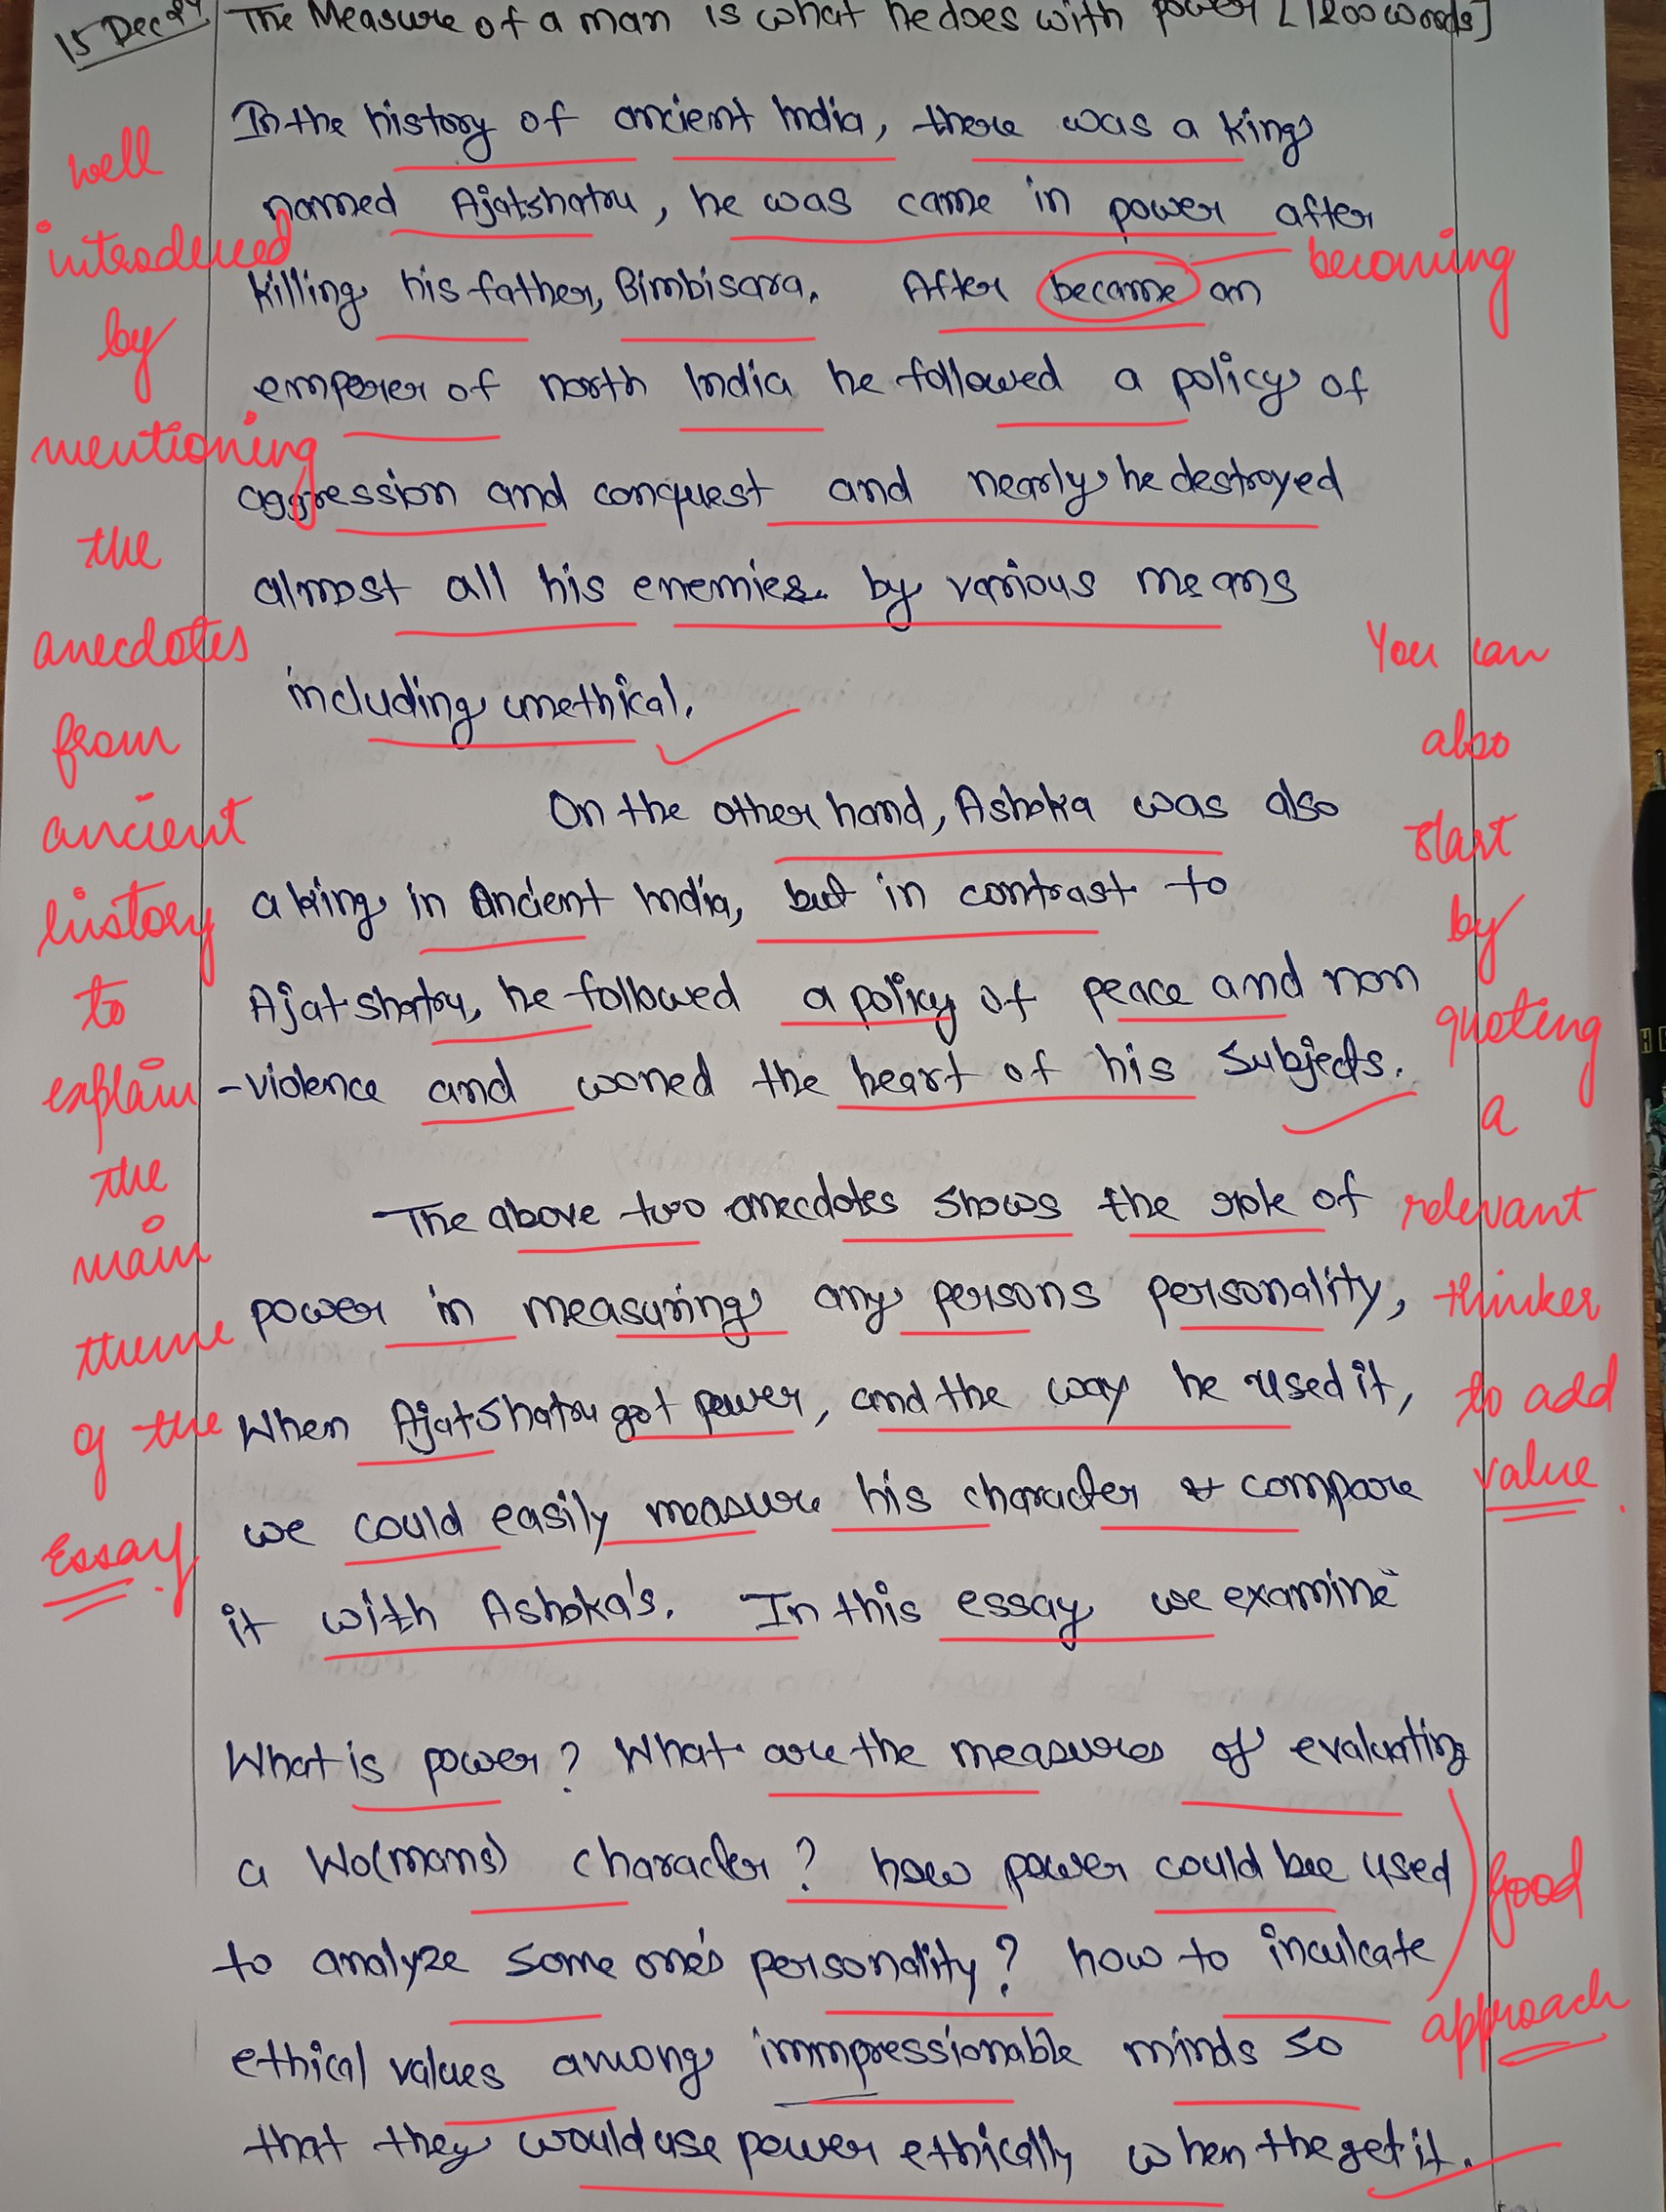 15 Dec 24 The Measure of a man is what he does with power [1200 words]
In the history of ancient India, there was a king
named Ajatshatru, he was came in power after
killing his father, Bimbisara. After became an
emperer of north India he followed a policy of
aggression and conquest and nearly he destroyed
almost all his enemies by various means
including unethical.
On the other hand, Ashoka was also
a king in Ancient India, but in contrast to
Ajatshatru, he followed a policy of peace and non
-violence and woned the heart of his subjects.
The above two anecdotes shows the role of
power in measuring any persons personality,
When Ajatshatru got power, and the way he used it,
we could easily measure his character & compare
it with Ashoka's. In this essay we examine
What is power? What are the measures of evaluating
a Wo(mans) character? how power could bee used
to analyze some one's personality? how to inculcate
ethical values among immpressionable minds so
that they would use power ethically when the get it.
well
introduced
by
mentioning
the
anecdotes
from
ancient
history
to
explain
the
main
theme
of the
Essay.
becoming
You can
also
start
by
quoting
a
relevant
thinker
to add
value.
Good
approach